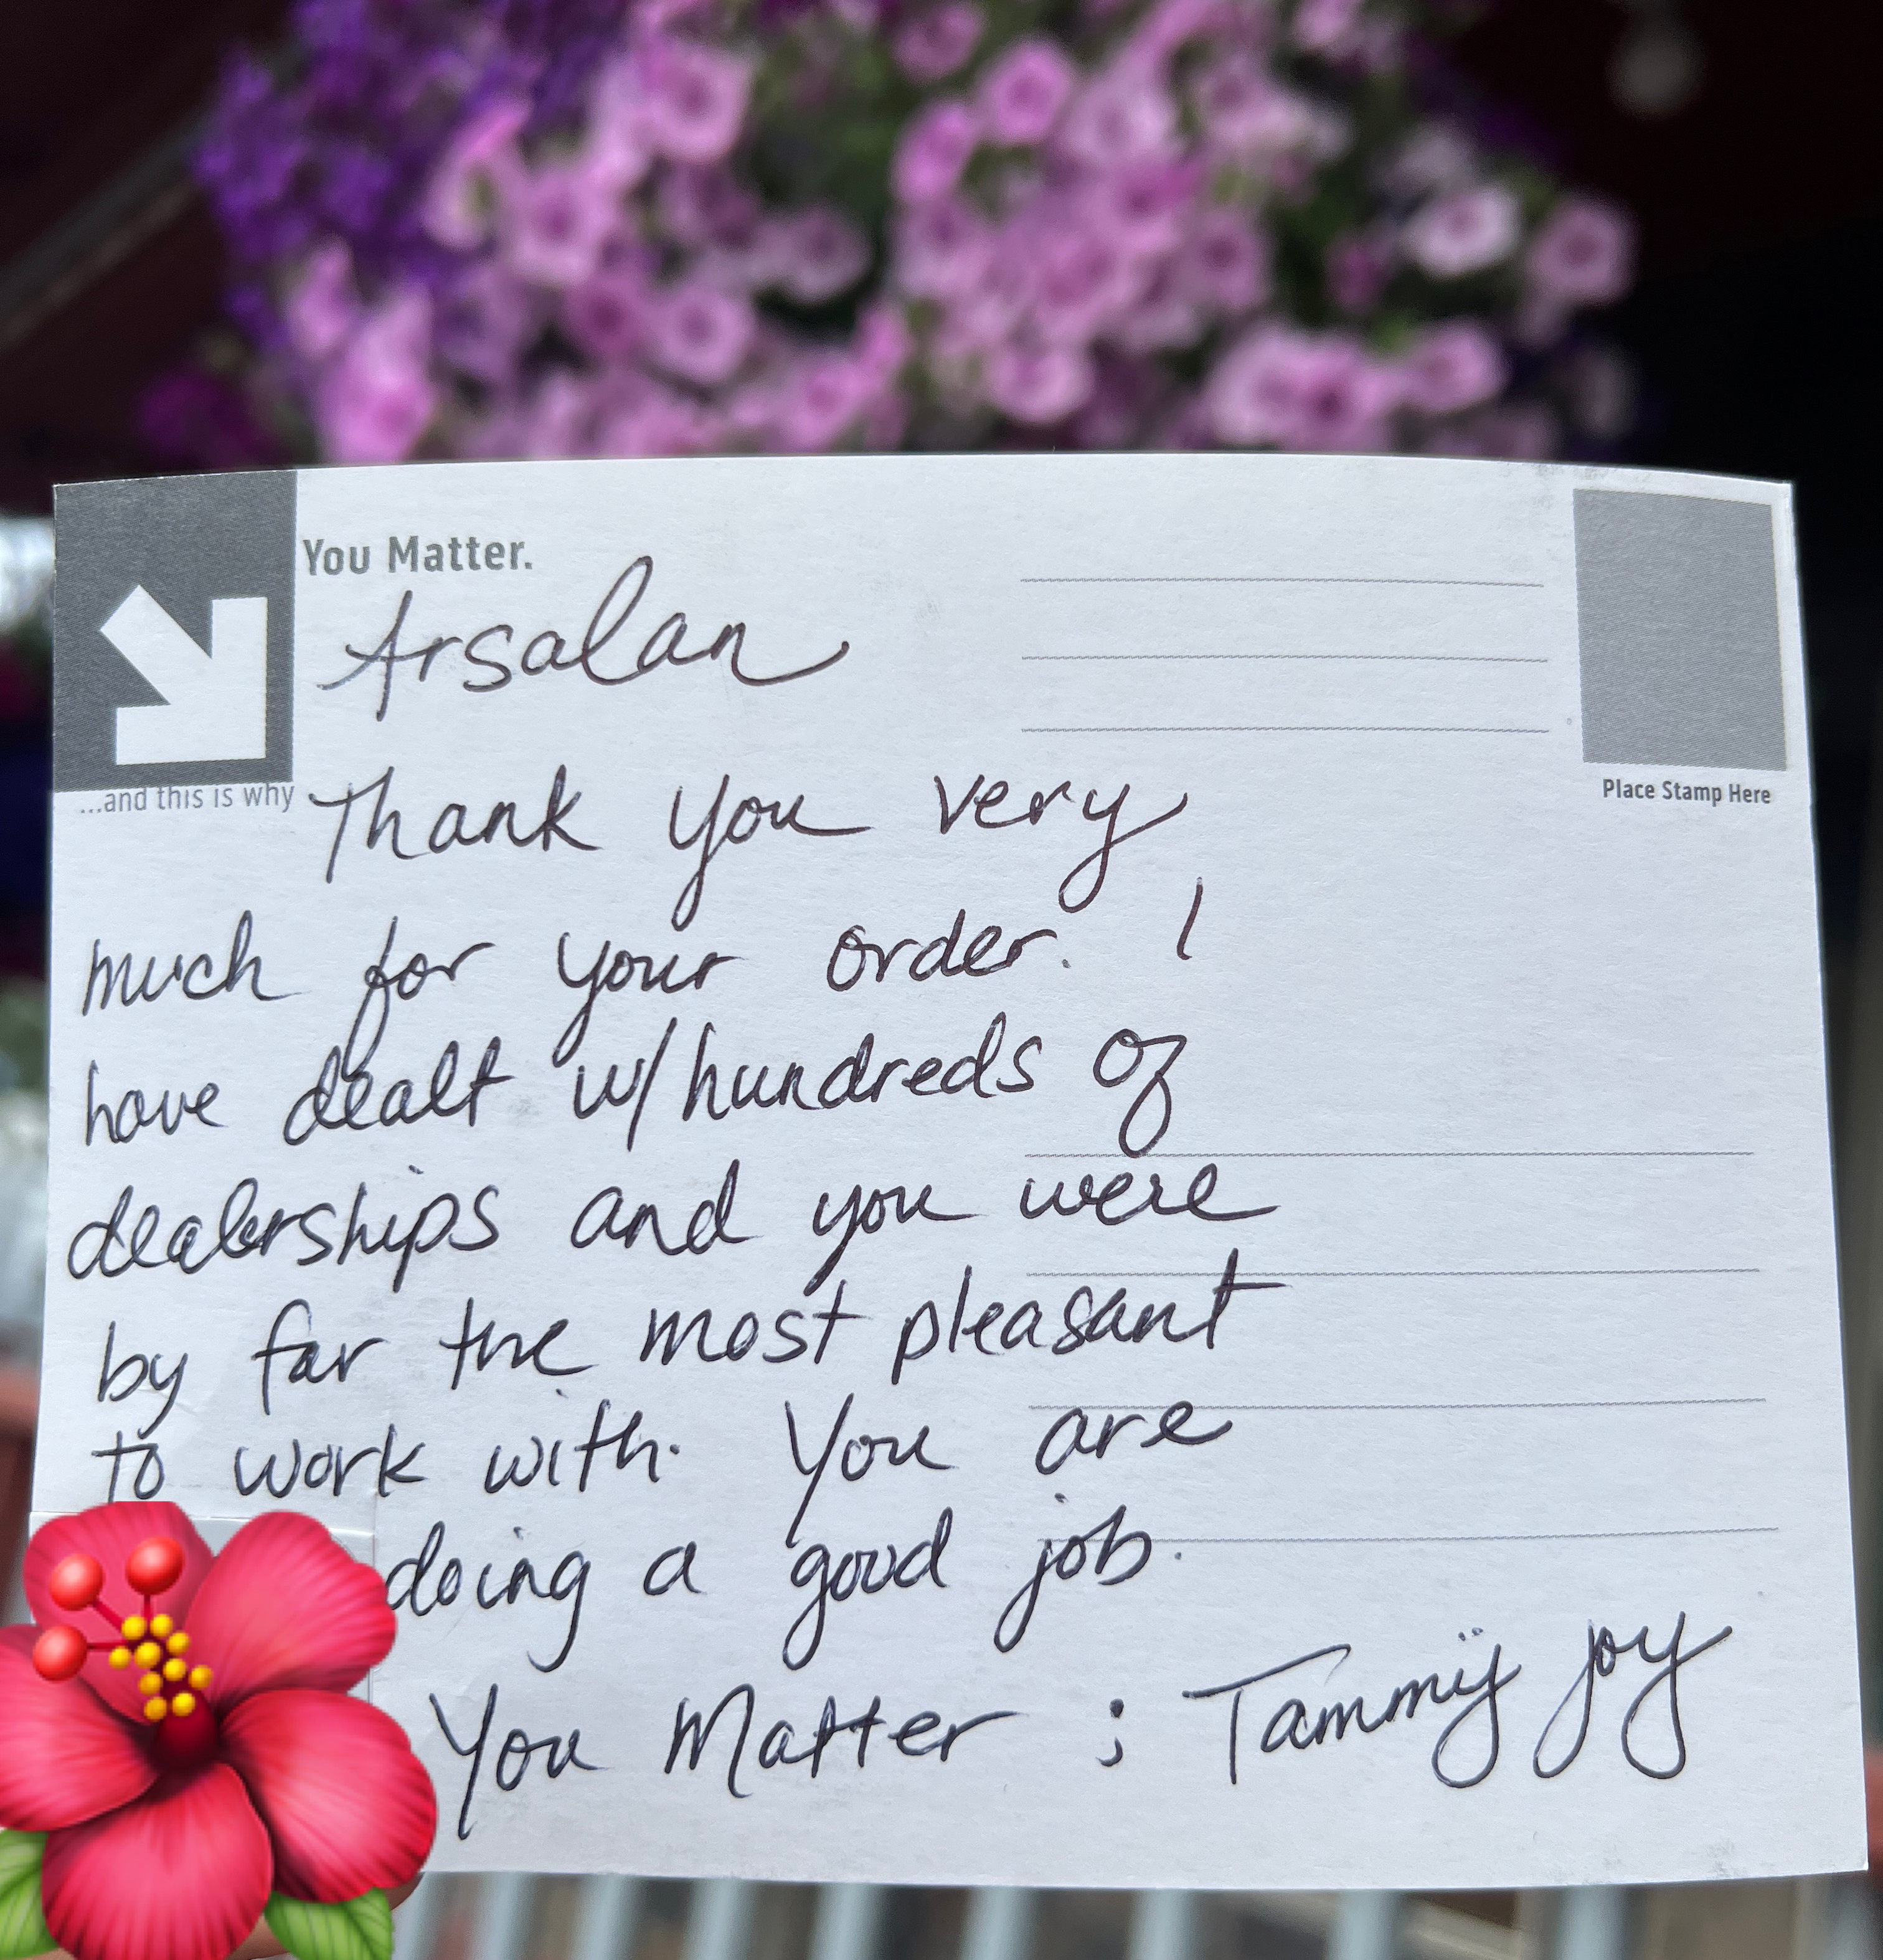 You Matter.
Arsalan
...and this is why
Place Stamp Here
Thank you very
much for your order. I
have dealt w/hundreds of
dealerships and you were
by far the most pleasant
to work with. You are
doing a good job.
You Matter ; Tammy Joy